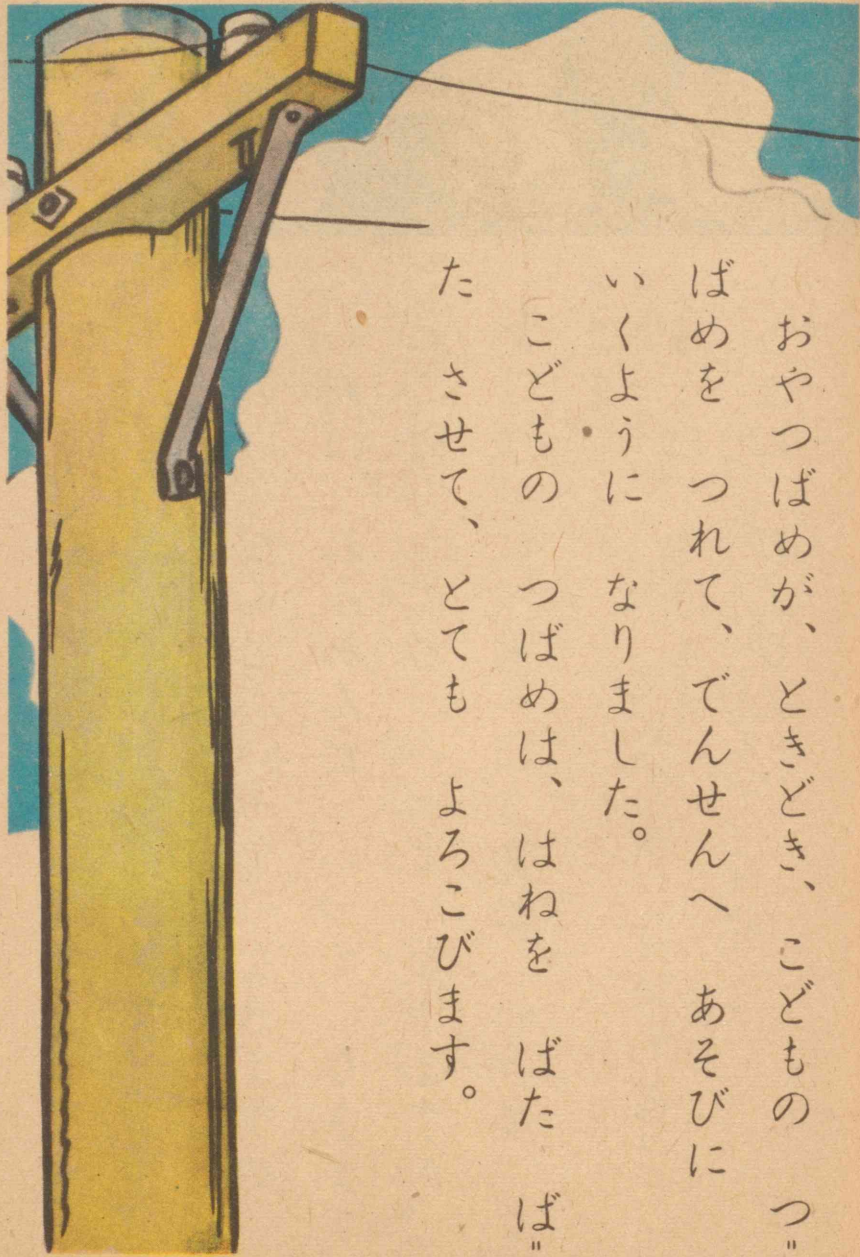 おやつばめが、ときどき、こどもの つ〃
ばめを つれて、でんせんへ あそびに
いくように なりました。
こどもの つばめは、はねを ばた ば〃
た させて、とても よろこびます。